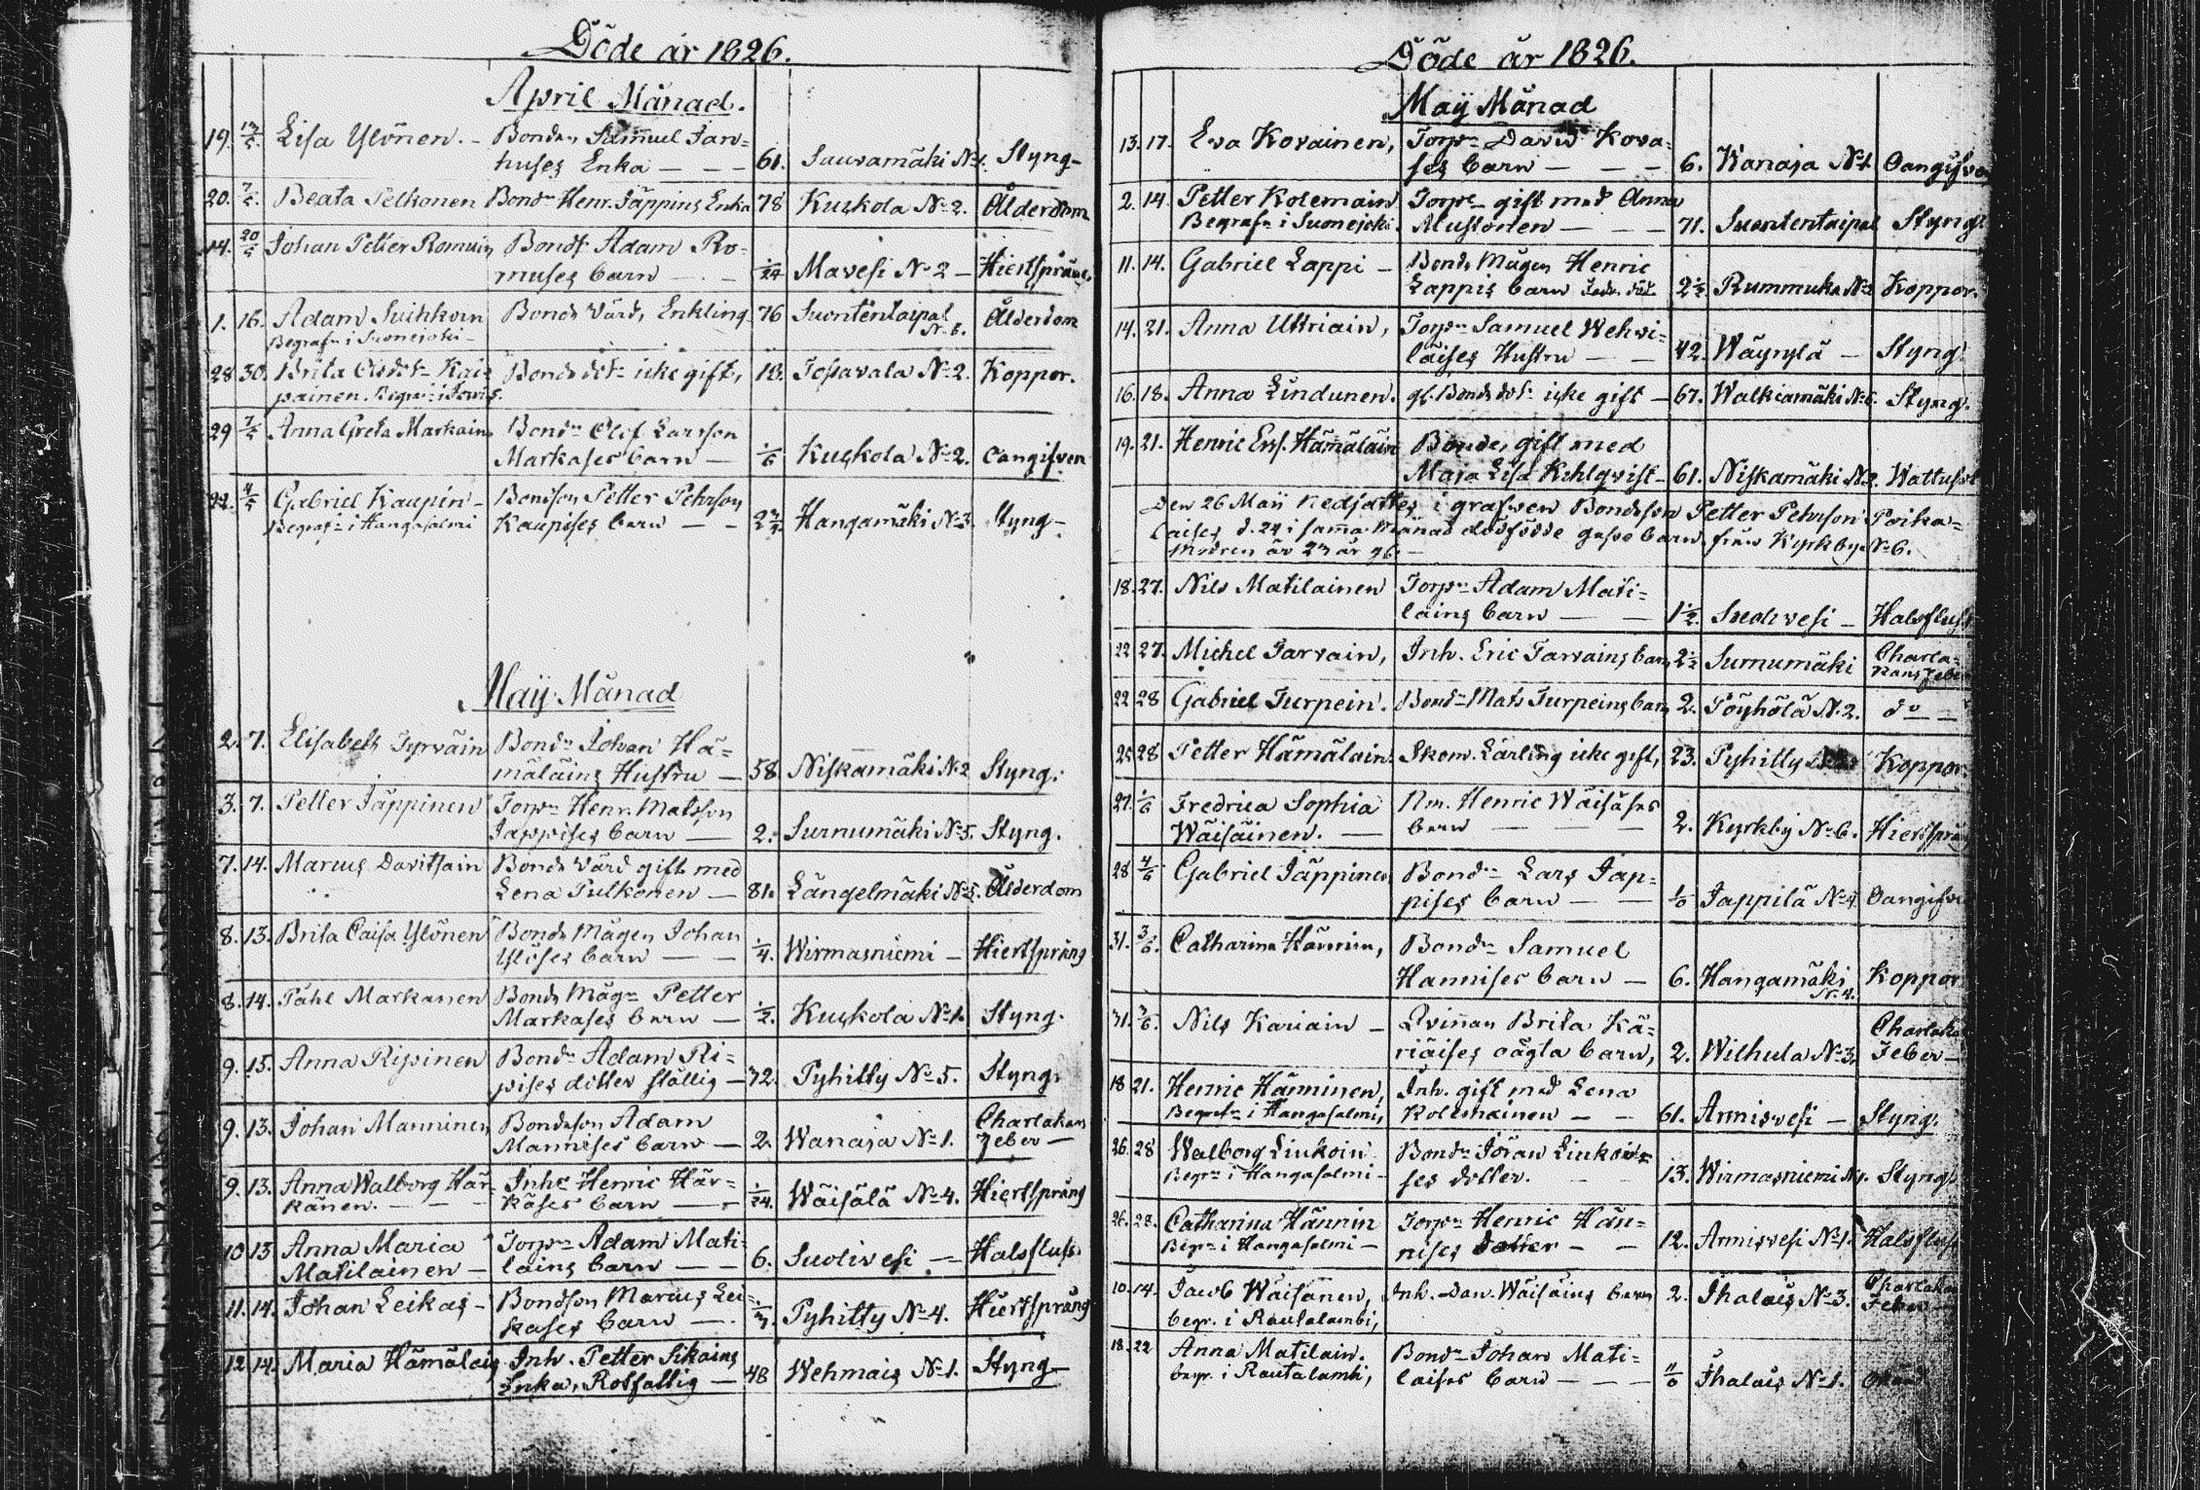 Döde år 1826.
April Månad.
19. Lisa Ylönen. – Bonden Samuel Jan=
huses Enka – – – 61. Suuramäki N:1. Styng –
20. 7/5. Beata Pelkonen Bondn Henr. Jäppins Enka 78 Kuskola N:2. Ålderdom
14. 20/5 Johan Petter Romuin Bonds Adam Ro=
muses barn – – 1/24 Mavesi N:2 – Hiertsprång
1. 16. Adam Suihkoin Bonds Vård, Enkling 76 Suontentaipal
N:8. Ålderdom
Begrafn i Suonejoki –
28 30. Brita Bonds dotr icke gift, 18. Tossavala N:2. Koppor.
painen. Begrn i
29 7/5 Anna Greta Markain Bondn Olof Larsson
Markases barn – 1/6 Kuskola N:2. Oangifven
22. 4/5 Gabriel Kaupin – Bondson Petter Pehrson
Begrafn i Hangasalmi Kaupises barn – – 2 Hangamäki N:3. Styng –
Maij Månad
2. 7. Elisabeth Tyrväin Bondn Johan Hä=
mäläins Hustru – 58. Niskamäki N:2 Styng.
3. 7. Petter Jäppinen Torpn Henr. Matsson
Jäppises barn – 2. Surnumäki N:5. Styng.
7. 14. Marcus Davitsain Bonds Vård gift med
Lena Pulkonen – 81. Längelmäki N:5. Ålderdom
8. 13. Brita Caisa Ylönen Bonds Mågen Johan
Ylöses barn – – 1/4. Wirmasniemi – Hiertsprång
8. 14. Påhl Markanen Bonds Mågn Petter
Markases barn – 1/2. Kuskola N:1. Styng.
9. 15. Anna Ripinen Bondn Adam Ri=
pises dotter ställig – 32. Pyhitty N:5. Styng.
9. 13. Johan Manninen Bondeson Adam
Mannises barn – 2. Wanaja N:1. Charlakans
feber –
9. 13. Anna Walborg Här= Inhs Henric Här=
känen. – – – käses barn – – 1/24. Wäisälä N:4. Hiertsprång
10 13 Anna Maria Torpn Adam Mati=
Matilainen – lains barn – – 6. Suolivesi – Halsfluss
11. 14. Johan Leikas – Bondson Marcus Lei=
kases barn – Pyhitty N:4. Hiertsprång
12 14. Maria Hämäläis Inh. Petter Sikains
Enka, Rotfattig – 48 Wehmais N:1. Styng –
Döde år 1826.
Maij Månad
13. 17. Eva Kovainen, Torpn David Kova=
ses barn – – – 6. Wanaja N:1 Oangifven
2. 14. Petter Kolemain Torpn gift med Anna
Begrafn i Suonejoki. Mustonen – – – 71. Suontentaipal Styng.
11. 14. Gabriel Lappi – Bonds Mågen Henric
Lappis barn 2 1/2 Rummuka N:2 Koppor.
14. 21. Anna Uttriain, Torpn Samuel Wehvi=
läises Hustru – – 42. Wäyrylä – Styng.
16. 18. Anna Lindunen. gl. Bonds dotr icke gift – 67. Walkiamäki N:6. Styng.
19. 21. Henric Ersf. Hämäläin Bonde, gift med
Maja Lisa Kihlqvist – 61. Niskamäki N:2. Wattusot
Den 26 Maij Nedsattes i grafven Bondeson Petter Pehrson Poika=
laises d. 24 i samma Månad dödfödde gosse barn från Kyrkby N:6.
Modren är 23 år gl. –
18. 27. Nils Matilainen Torpn Adam Mati=
lains barn – – 1 1/2. Suolivesi – Halsfluss
22 27. Michel Tarvain, Inh. Eric Tarvains barn 2 1/2 Surnumäki Charla=
kans feber
22 28 Gabriel Turpein. Bondn Mats Turpeins barn 2. Pöyhölä N:2. do –
25 28 Petter Hämäläin Skom. Lärling icke gift, 23. Pyhitty Koppor.
27. 1/6 Fredrica Sophia Nm. Henric Wäisäses
Wäisäinen. – barn – – – 2. Kyrkby N:6. Hiertsprång
28 4/6 Gabriel Jäppinen Bondn Lars Jäp=
pises barn – – Jäppilä N:4 Oangifven
31. 3/6. Catharina Hännin, Bondn Samuel
Hannises barn – 6. Hangamäki
N:4. Koppor
31. Nils Kariain – Qvinnan Brita Kä=
riäises oägta barn, 2. Wilhula N:3. Charlakans
Feber –
18 21. Henric Hänninen, Inh. gift med Lena
Begrafn i Hangasalmi, Kolemainen – – 61. Armisvesi – Styng.
26. 28 Walborg Liukoin Bondn Göran Liukois=
Begrn i Hangasalmi – ses dotter. – – 13. Wirmasniemi N:1. Styng.
26. 28. Catharina Hännin Torpn Henric Hän=
Begrn i Hangasalmi – nises dotter – – 12. Armisvesi N:1. Halsfluss
10. 14. Jacob Wäisänen, Inh. Dan. Wäisäins barn 2. Ihalais N:3. Charlakans
Feber –
begr. i Rautalambi,
18. 22 Anna Matilain. Bondn Johan Mati=
begr. i Rautalambi, laises barn – – – Ihalais N:1.